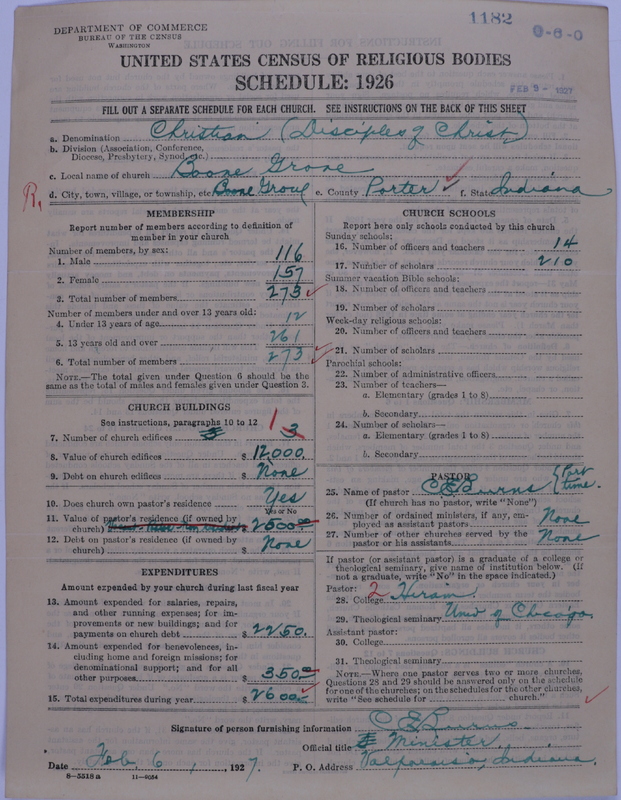 1182
DEPARTMENT OF COMMERCE
BUREAU OF THE CENSUS
WASHINGTON
0-6-0
UNITED STATES CENSUS OF RELIGIOUS BODIES
SCHEDULE: 1926
FEB 9 - 1927
FILL OUT A SEPARATE SCHEDULE FOR EACH CHURCH. SEE INSTRUCTIONS ON THE BACK OF THIS SHEET
a. Denomination Christian (Disciples of Christ)
b. Division (Association, Conference, Diocese, Presbytery, Synod, etc.)
c. Local name of church Boone Grove
R. d. City, town, village, or township, etc. Boone Grove e. County Porter f. State Indiana
MEMBERSHIP
Report number of members according to definition of member in your church
Number of members, by sex:
1. Male 116
2. Female 157
3. Total number of members 273
Number of members under and over 13 years old:
4. Under 13 years of age 12
5. 13 years old and over 261
6. Total number of members 273
NOTE.—The total given under Question 6 should be the same as the total of males and females given under Question 3.
CHURCH BUILDINGS
See instructions, paragraphs 10 to 12
7. Number of church edifices 3 1
8. Value of church edifices $ 12,000.
9. Debt on church edifices $ None
10. Does church own pastor's residence Yes
Yes or No
11. Value of pastor's residence (if owned by church) $ 2500
12. Debt on pastor's residence (if owned by church) $ None
EXPENDITURES
Amount expended by your church during last fiscal year
13. Amount expended for salaries, repairs, and other running expenses; for improvements or new buildings; and for payments on church debt $ 2250.
14. Amount expended for benevolences, including home and foreign missions; for denominational support; and for all other purposes $ 350
15. Total expenditures during year $ 2600
CHURCH SCHOOLS
Report here only schools conducted by this church
Sunday schools:
16. Number of officers and teachers 14
17. Number of scholars 210
Summer vacation Bible schools:
18. Number of officers and teachers
19. Number of scholars
Week-day religious schools:
20. Number of officers and teachers
21. Number of scholars
Parochial schools:
22. Number of administrative officers
23. Number of teachers—
a. Elementary (grades 1 to 8)
b. Secondary
24. Number of scholars—
a. Elementary (grades 1 to 8)
b. Secondary
PASTOR
25. Name of pastor C E Burns (Part time.
(If church has no pastor, write "None")
26. Number of ordained ministers, if any, employed as assistant pastors None
27. Number of other churches served by the pastor or his assistants None
If pastor (or assistant pastor) is a graduate of a college or theological seminary, give name of institution below. (If not a graduate, write "No" in the space indicated.)
Pastor:
28. College 2 Hiram
29. Theological seminary Univ of Chicago
Assistant pastor:
30. College
31. Theological seminary
NOTE.—Where one pastor serves two or more churches, Questions 28 and 29 should be answered only on the schedule for one of the churches; on the schedules for the other churches, write "See schedule for church."
Signature of person furnishing information C E Burns
Official title Minister
Date Feb. 6, 1927. P. O. Address Valparaiso, Indiana.
8-5518 a 11-9084